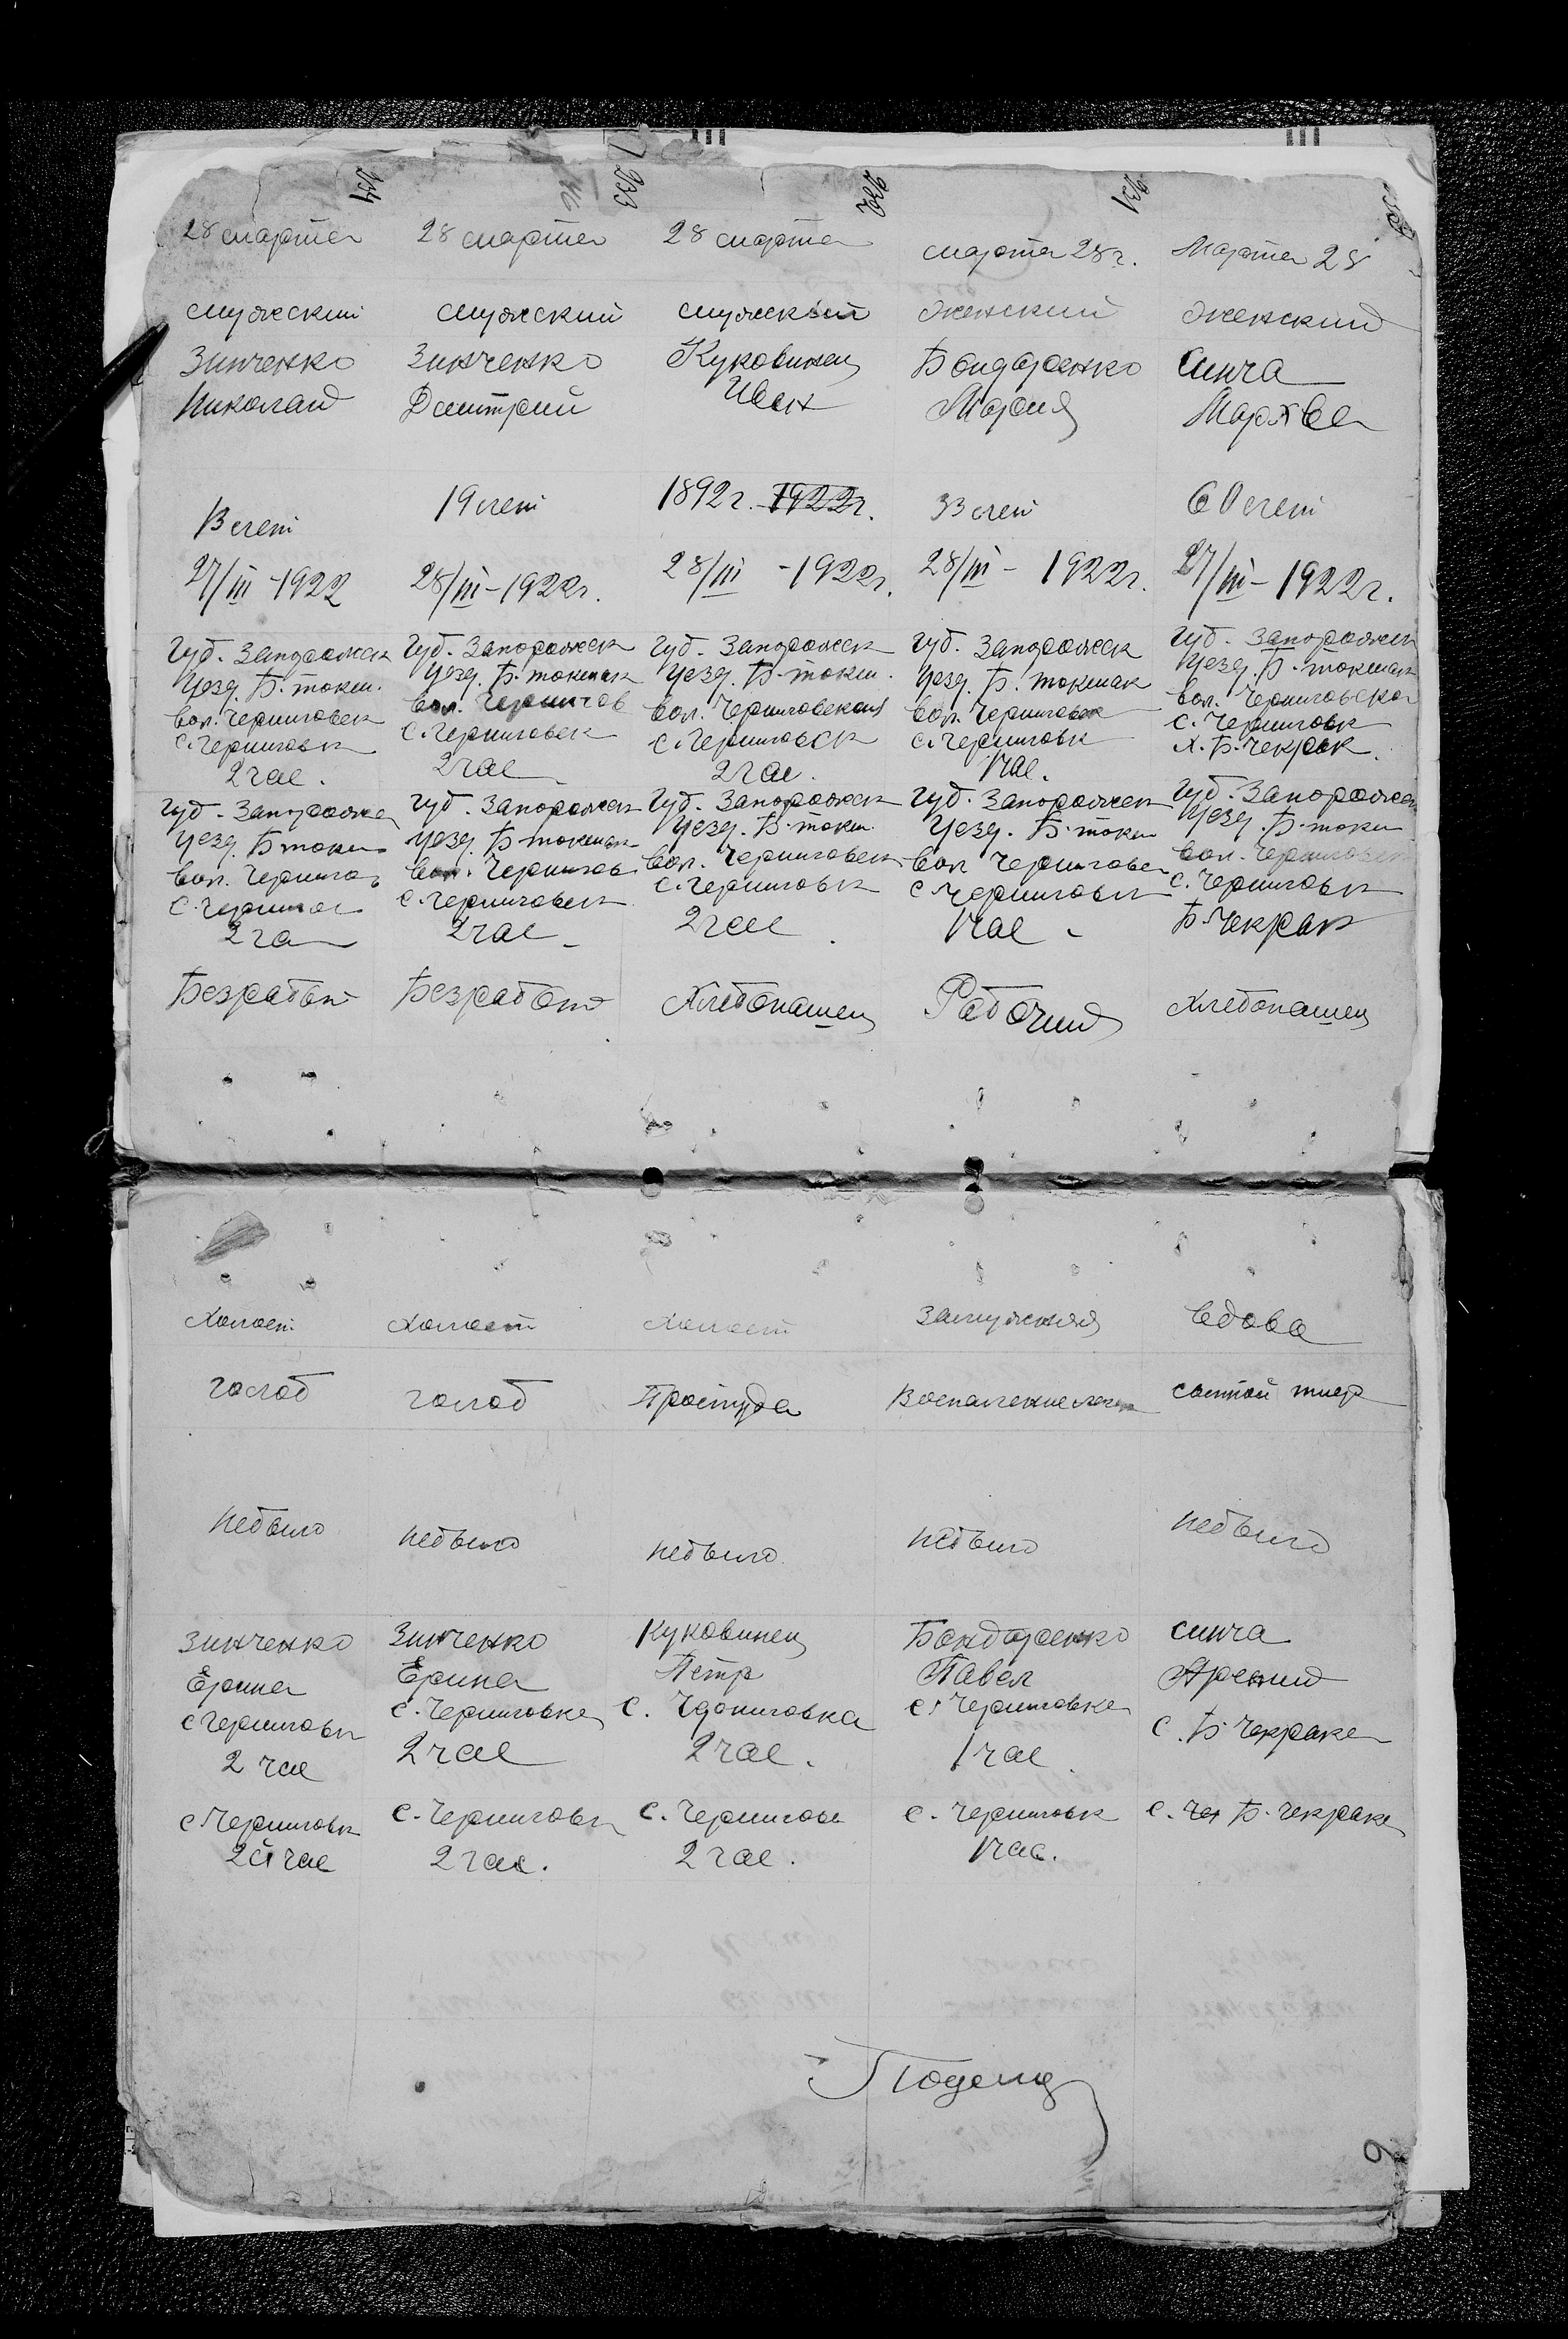 234 233 232 231
28 марта 28 марта 28 марта марта 28 г. Марта 28
мужеский мужеский мужеский женский женский
Зинченко Зинченко Куковинец Бондаренко Синча
Николай Дмитрий Иван Мария Марфва
13 лет 19 лет 1892 г. 1922 г. 33 лет 60 лет
27/III-1922 28/III-1922 г. 28/III-1922 г. 28/III-1922 г. 27/III-1922 г.
Губ. Запорожск Губ. Запорожск Губ. Запорожск Губ. Запорожск Губ. Запорожск
Уезд. Б. токм. Уезд. Б-токмак Уезд. Б-токм. Уезд. Б. токмак Уезд. Б-токмак
вол. Черниговск вол. Чернигов вол. Черниговская вол. Черниговск вол. Черниговской
с. Черниговк с. Черниговск с. Черниговск с. Черниговк с. Черниговк
2 час. 2 час 2 час. 1 час. х. Б. Чекрак.
Губ. Запорожс Губ. Запорожск Губ. Запорожск Губ. Запорожск Губ. Запорожск
Уезд. Б токм Уезд. Б токмак Уезд. Б-токм. Уезд. Б-токм Уезд. Б-токм
вол. Чернигов вол. Чернигов вол. Черниговск вол Черниговс вол. Черниговск
с. Чернигов с. Черниговск с. Черниговк с Черниговк с. Черниговк
2 ча 2 час 2 час. 1 час Б-Чекрак
Безработ Безработ Хлебопашец Рабочий Хлебопашец
Холост Холост Холост Замужняя Вдова
голод голод Простуда Воспаление легк сыпной тиф
небыло небыло небыло небыло небыло
Зинченко Зинченко Куковинец Бондаренко Синча
Ерина Ерина Петр Павел Арений
с Черниговк с. Черниговке с. Черниговка с. Черниговке с. Б-Чекраке
2 час 2 час 2 час. 1 час.
с Черниговк с. Черниговк с. Чернигов с. Черниговк с. Че Б. Чекраке
2й час 2 час. 2 час. 1 час.
9